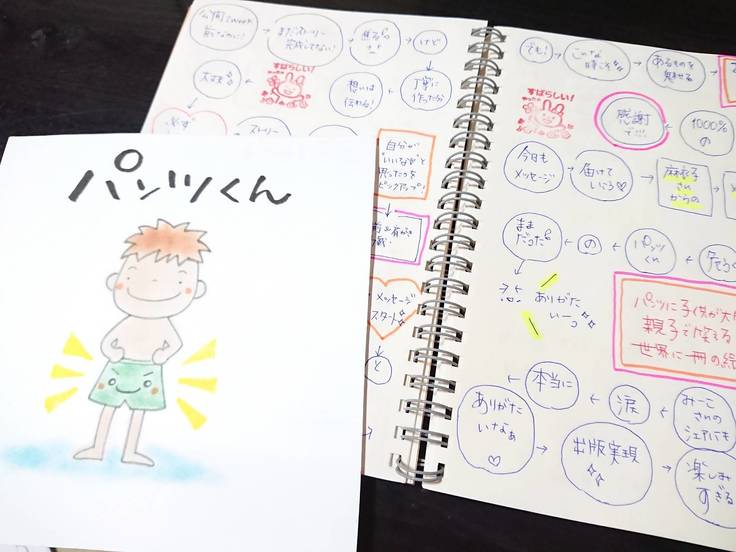 パンツくん
まだストーリー
完成してない!
けど
大丈夫
すばらしい!
想いは
伝わる!
丁寧に
作ったから
必ず
ストーリー
自分が
メッセージ
スタート
と
でも!
こんな
時こそ
あるものを
魅せる
すばらしい!
感謝
で!!!
1000%
の
今日も
メッセージ
届けて
いこう♡
麻衣子
さん
からの
まま
だった
の
パンツ
くん
ありがた
いーっ
パンツに子供が大
親子で笑える
世界に一冊の絵
本当に
涙
みーこ
さんの
シェアにも
ありがた
いなぁ
♡
出版実現
楽しみ
すぎる